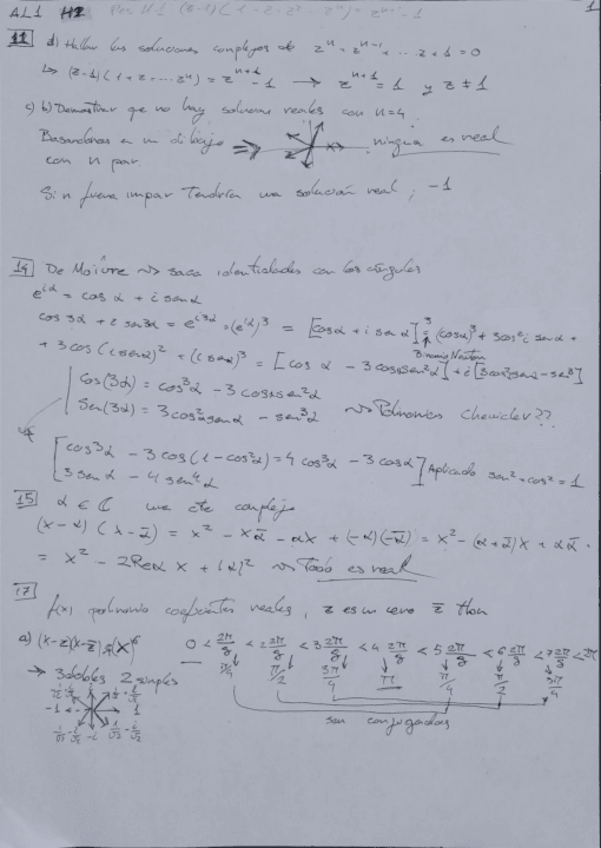 AL1 H2 (z-1)(1+z+z²...zⁿ) = zⁿ⁺¹-1 1
11 d) Hallar las soluciones complejas de zⁿ+zⁿ⁻¹+...z+1=0
↳ (z-1)(1+z+...zⁿ) = zⁿ⁺¹-1 → zⁿ⁺¹=1 y z≠1
c) b) Demostrar que no hay soluciones reales con n=4
Basandonos en un dibujo ⇒ ninguna es real
con n par.
Si n fuera impar tendría una solución real, -1
14 De Moivre ~> saca identidades con los ángulos
e^{iα} = cos α + i sen α
cos 3α + i sen3α = e^{i3α} = (e^{iα})³ = [cosα + i sen α]³ = (cosα)³ + 3cos² i sen α +
Binomio Newton
+ 3 cos (i sen α)² + (i sen α)³ = [cos³α - 3 cos sen²α] + i [3cos²sen α - sen³]
cos(3α) = cos³α - 3cosα sen²α
Sen(3α) = 3cos²α senα - sen³α ~> Polinomios ??
cos³α - 3 cos(1-cos²α) = 4 cos³α - 3 cosα
Aplicando sen²+cos²=1
3 sen α - 4 sen⁴α
15 α ∈ ℂ una cte compleja
(x-α)(x-ᾱ) = x² - xᾱ - αx + (-α)(-ᾱ) = x² - (α+ᾱ)x + αᾱ =
= x² - 2Reα x + |α|² ~> Todo es real
17
f(x) polinomio coeficientes reales, z es un cero z̄ tbn
a) (x-z)(x-z̄) g(x)⁶ 0 < 2π/8 < 2 2π/8 < 3 2π/8 < 4 2π/8 < 5 2π/8 < 6 2π/8 < 7 2π/8 < 2π
→ 3 dobles 2 simples π/4 π/2 3π/4 π π/4 π/2 3π/4
-1 1
-i
son conjugadas